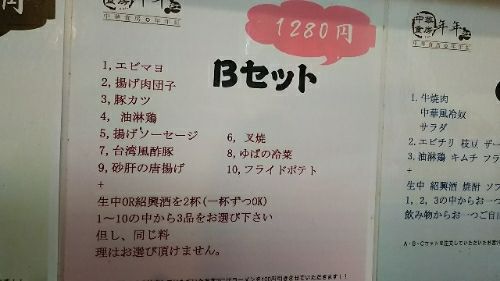 円
中華食房
年年
1280円
Bセット
1,エビマヨ
2,揚げ肉団子
3,豚カツ
4, 油淋鶏
5,揚げソーセージ
6, 叉焼
7,台湾風酢豚
8,ゆばの冷菜
9,砂肝の唐揚げ
10,フライドポテト
+
生中OR紹興酒を2杯(一杯ずつOK)
1〜10の中から3品をお選び下さい
但し、同じ料
理はお選び頂けません。
中華食房
年年
1.牛焼肉
中華風冷奴
サラダ
2.エビチリ 枝豆 ザー
3.油淋鶏 キムチ フラ
+
生中 紹興酒 焼酎 ソフ
1, 2, 3の中からお一つ
飲み物からお一つご自